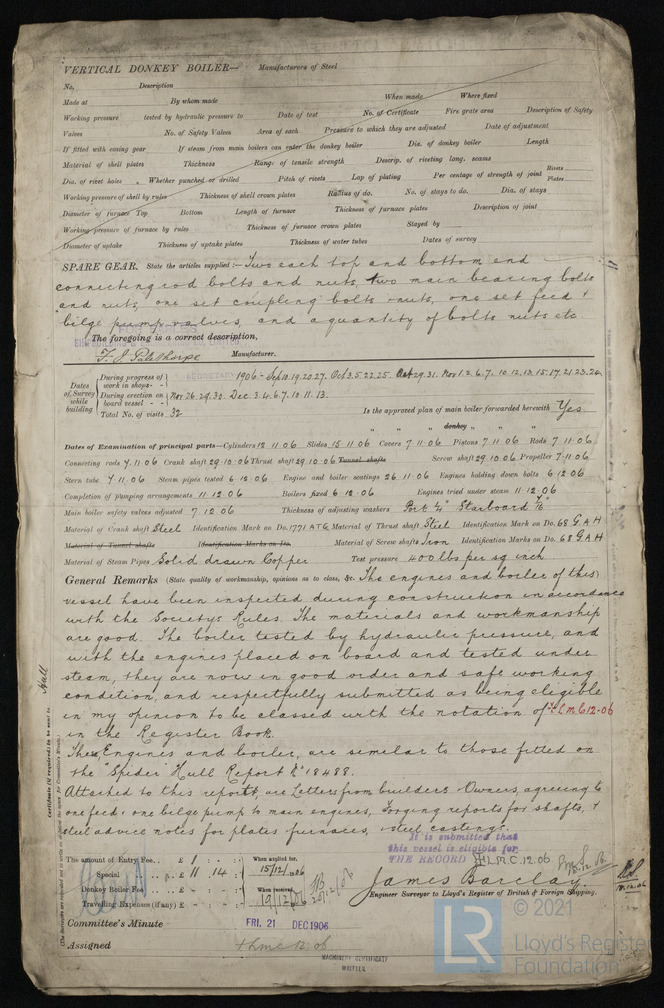 VERTICAL DONKEY BOILER— Manufacturers of Steel
No. Description
Made at By whom made When made Where fixed
Working pressure tested by hydraulic pressure to Date of test No. of Certificate Fire grate area Description of Safety
Valves No. of Safety Valves Area of each Pressure to which they are adjusted Date of adjustment
If fitted with easing gear If steam from main boilers can enter the donkey boiler Dia. of donkey boiler Length
Material of shell plates Thickness Range of tensile strength Descrip. of riveting long. seams
Dia. of rivet holes Whether punched or drilled Pitch of rivets Lap of plating Per centage of strength of joint Rivets Plates
Working pressure of shell by rules Thickness of shell crown plates Radius of do. No. of stays to do. Dia. of stays
Diameter of furnace Top Bottom Length of furnace Thickness of furnace plates Description of joint
Working pressure of furnace by rules Thickness of furnace crown plates Stayed by
Diameter of uptake Thickness of uptake plates Thickness of water tubes Dates of survey
SPARE GEAR. State the articles supplied:— Two each top and bottom end
connecting rod bolts and nuts, two main bearing bolts
and nuts, one set coupling bolts & nuts, one set feed &
bilge pump valves, and a quantity of bolts nuts etc
The foregoing is a correct description,
Manufacturer.
Dates of Survey while building
During progress of work in shops - - 1906 - Sep 10.19.20.27. Oct 3.5.22.25. Oct 29.31. Nov 1.2.6.7.10.12.13.15.17.21.23.24
During erection on board vessel - - Nov 26.29.30. Dec. 3.4.6.7.10.11.13.
Total No. of visits 32 Is the approved plan of main boiler forwarded herewith Yes
" " donkey " " "
Dates of Examination of principal parts—Cylinders 12 11 06 Slides 15 11 06 Covers 7 11 06 Pistons 7 11 06 Rods 7 11 06
Connecting rods 7.11.06 Crank shaft 29.10.06 Thrust shaft 29.10.06 Tunnel shafts Screw shaft 29.10.06 Propeller 7.11.06
Stern tube 7.11.06 Steam pipes tested 6.12.06 Engine and boiler seatings 26.11.06 Engines holding down bolts 6.12.06
Completion of pumping arrangements 11.12.06 Boilers fixed 6.12.06 Engines tried under steam 11.12.06
Main boiler safety valves adjusted 7.12.06 Thickness of adjusting washers Port Starboard
Material of Crank shaft Steel Identification Mark on Do. 1771 ATG Material of Thrust shaft Steel Identification Mark on Do. 68 GAH
Material of Tunnel shafts Identification Marks on Do. Material of Screw shafts Iron Identification Marks on Do. 68 GAH
Material of Steam Pipes Solid drawn Copper Test pressure 400 lbs per sq inch
General Remarks (State quality of workmanship, opinions as to class, &c. The engines and boiler of this
vessel have been inspected during construction in accordance
with the Societys Rules. The materials and workmanship
are good. The boiler tested by hydraulic pressure, and
with the engines placed on board and tested under
steam, they are now in good order and safe working
condition, and respectfully submitted as being eligible
in my opinion to be classed with the notation of + L.M.C 12-06
in the Register Book.
These Engines and boiler, are similar to those fitted on
the "Spider" Hull Report No 18488.
Attached to this report, are Letters from builders & Owners, agreeing to
one feed & one bilge pump to main engines, Forging reports for shafts, &
steel advice notes for plates furnaces, & steel castings.
It is submitted that
this vessel is eligible for
THE RECORD + L.M.C. 12.06
The amount of Entry Fee .. £ 1 : : When applied for,
Special .. £ 11 . 14 : 15/12/06
Donkey Boiler Fee .. £ : : When received,
Travelling Expenses (if any) £ : : 19/12/06 20/12/06
James Barclay
Engineer Surveyor to Lloyd's Register of British & Foreign Shipping.
Committee's Minute FRI. 21 DEC 1906
Assigned + L.M.C. 12.06
MACHINERY CERTIFICATE
WRITTEN
Certificate (if required) to be sent to Hull
© 2021
LR Lloyd's Register
Foundation